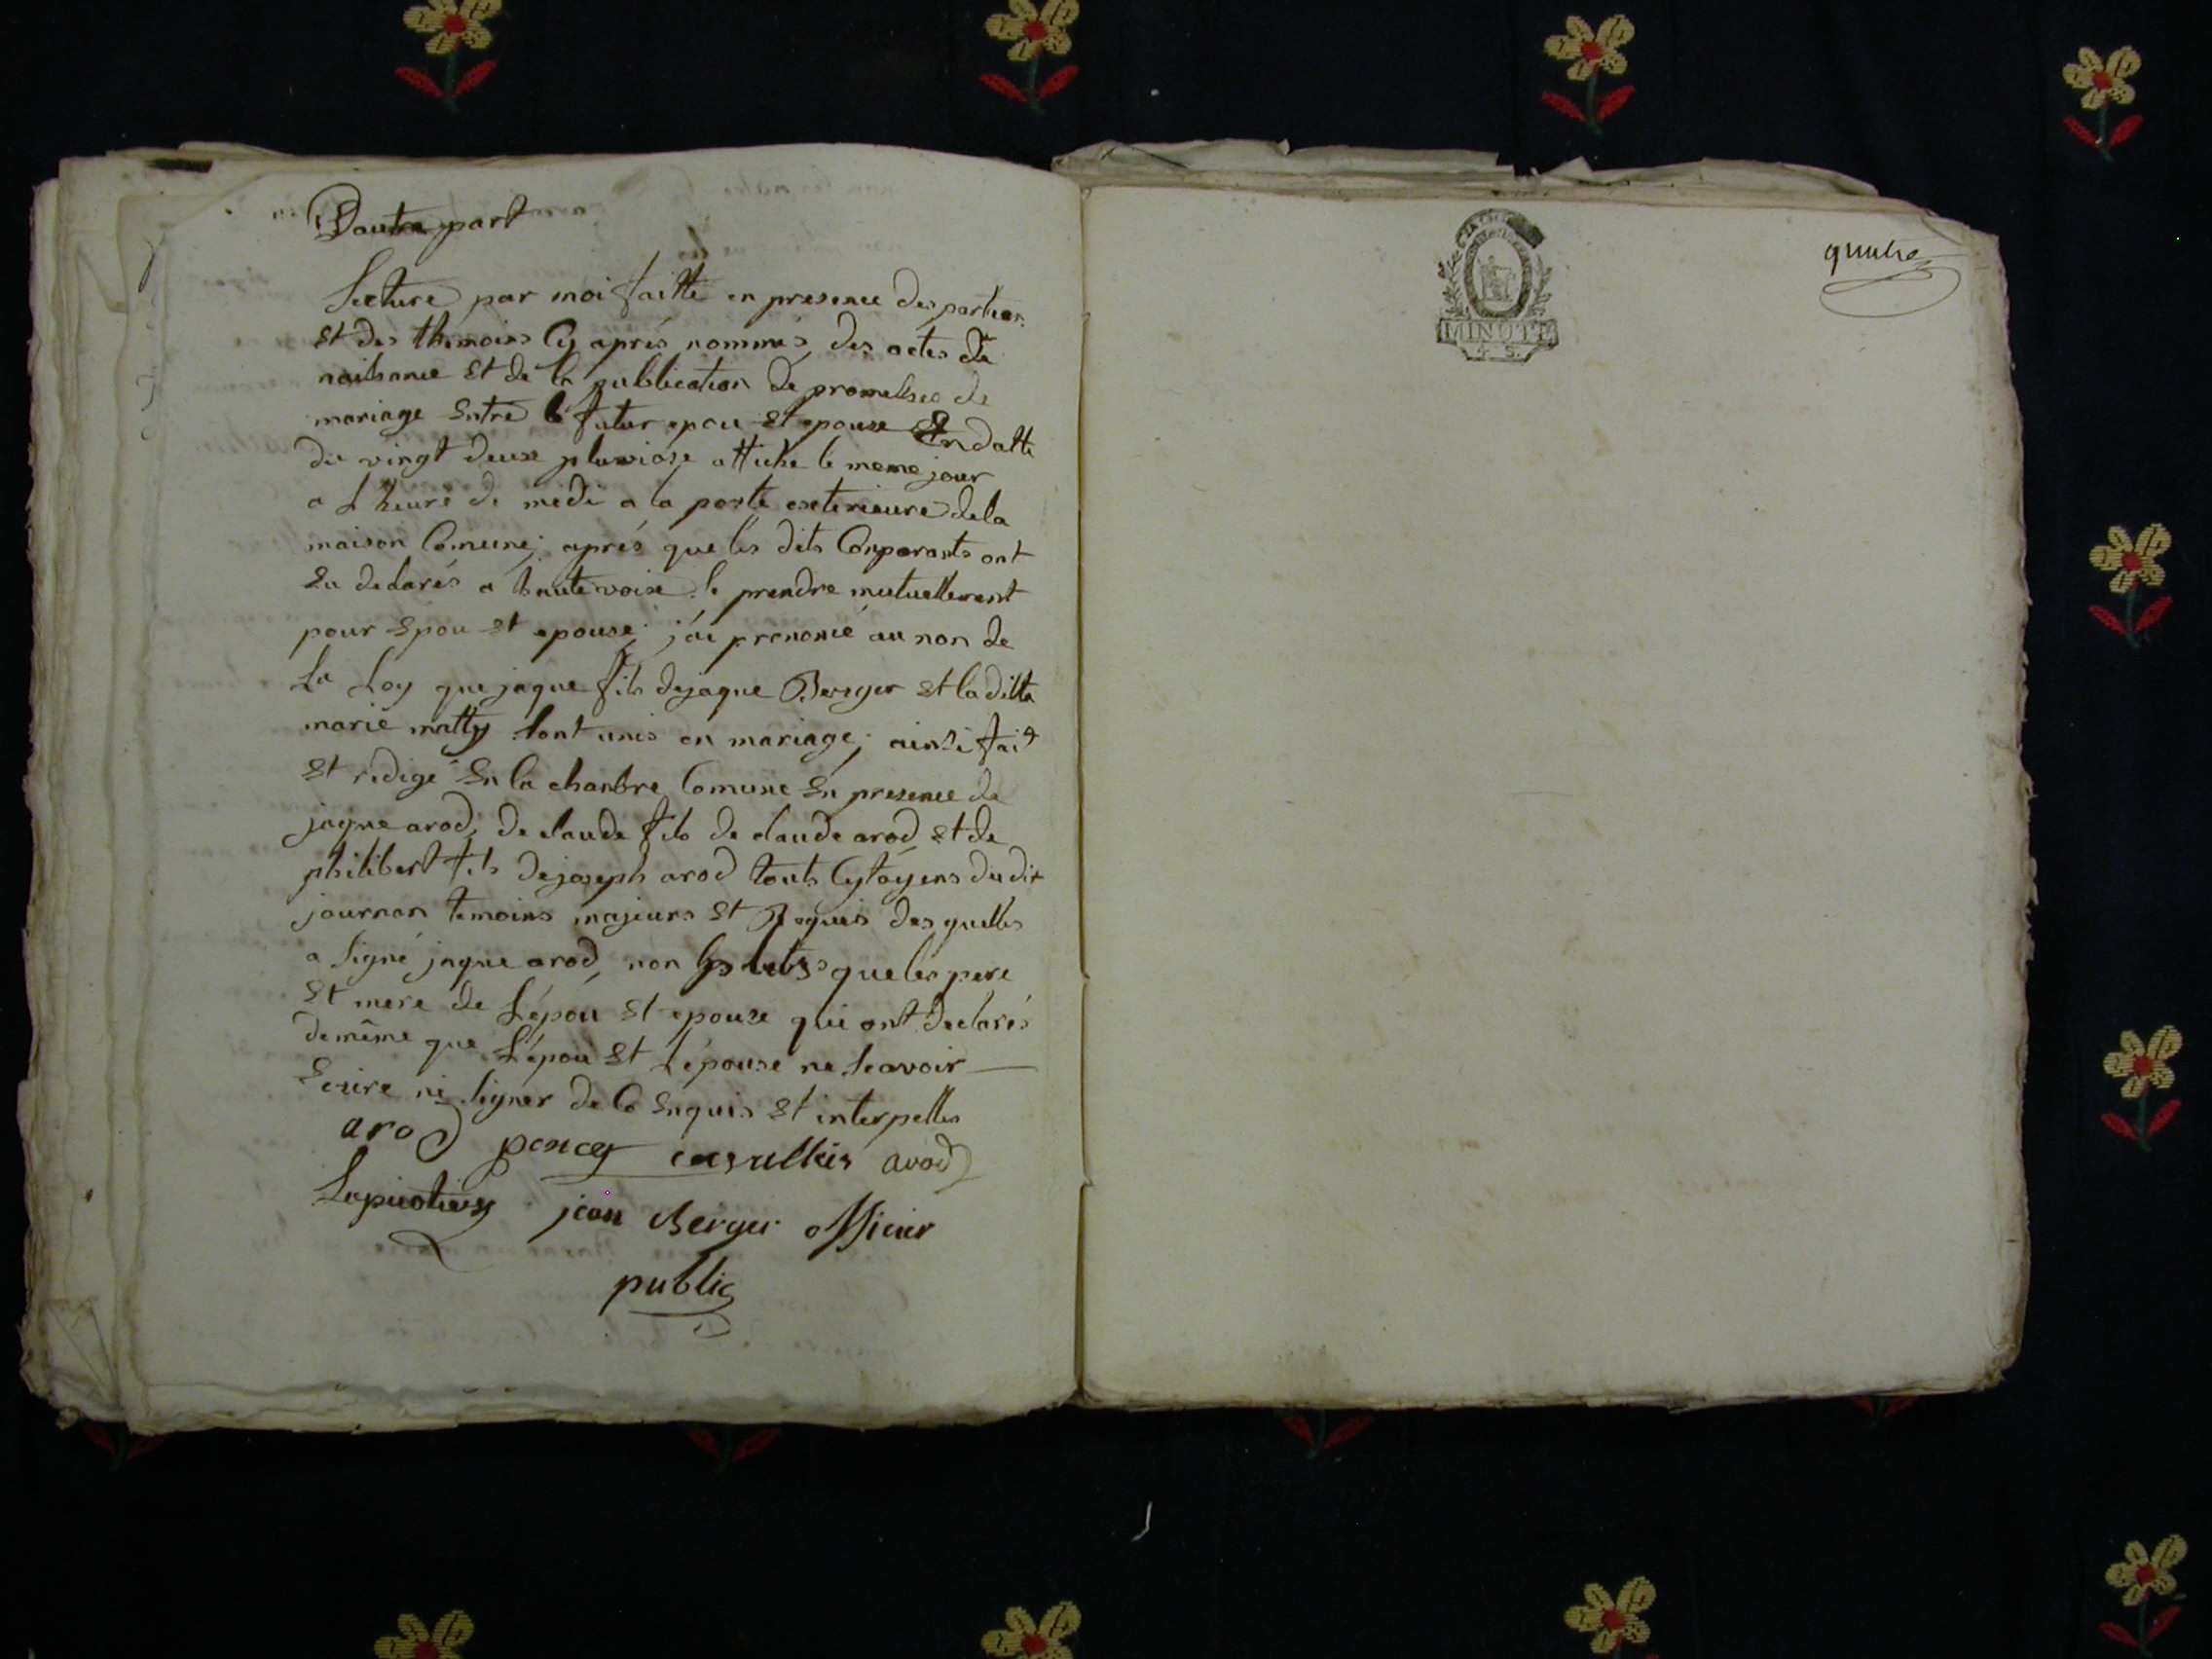 Dautre part
Lecture par moi faitte en presence des parties
Et des themoins Cy aprés nommés, des actes de
naissance Et de la publication de promesses de
mariage Entre le futur epou Et epouse En datte
du vingt deux pluviose affiche le meme jour
a L heure de midi a la porte exterieure de la
maison Comune; aprés que les dits Comparants ont
Eu declarés a haute voix se prendre mutuellement
pour Epou Et epouse; j'ai prononcé au non de
La Loy que jaque fils de jaque Berger Et la ditte
marie matty sont unis en mariage; ainsi fait
Et redigé En la chambre Comune En presence de
jaque arod, de claude fils de claude arod, Et de
philibert fils de joseph arod touts Cytoyens du dit
journan temoins majeurs Et Requis des quelles
a signé jaque arod, non les que les pere
Et mere de L'épou Et epouse qui ont declarés
de même que L'épou Et L'épouse ne scavoir
Ecrire ni signer de Ce Enquis Et interpellés
arod poncet arod
jean Berger officier
public
MINUTE
4 S.